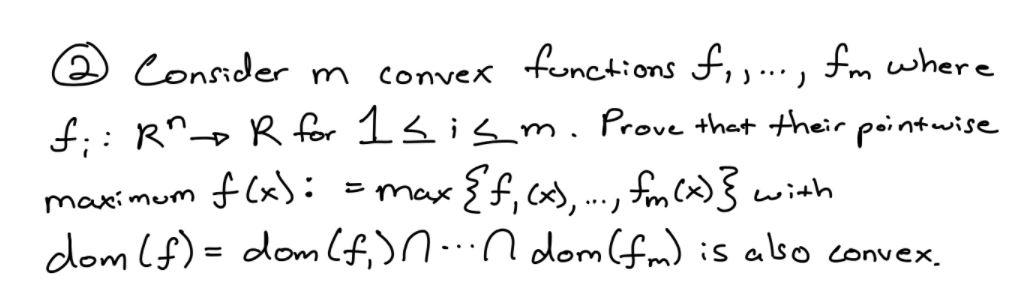 ② Consider m convex functions f₁,..., fₘ where
fᵢ: Rⁿ→ R for 1≤i≤m. Prove that their pointwise
maximum f(x): = max {f₁(x),..., fₘ(x)} with
dom(f) = dom(f₁)∩···∩ dom(fₘ) is also convex.